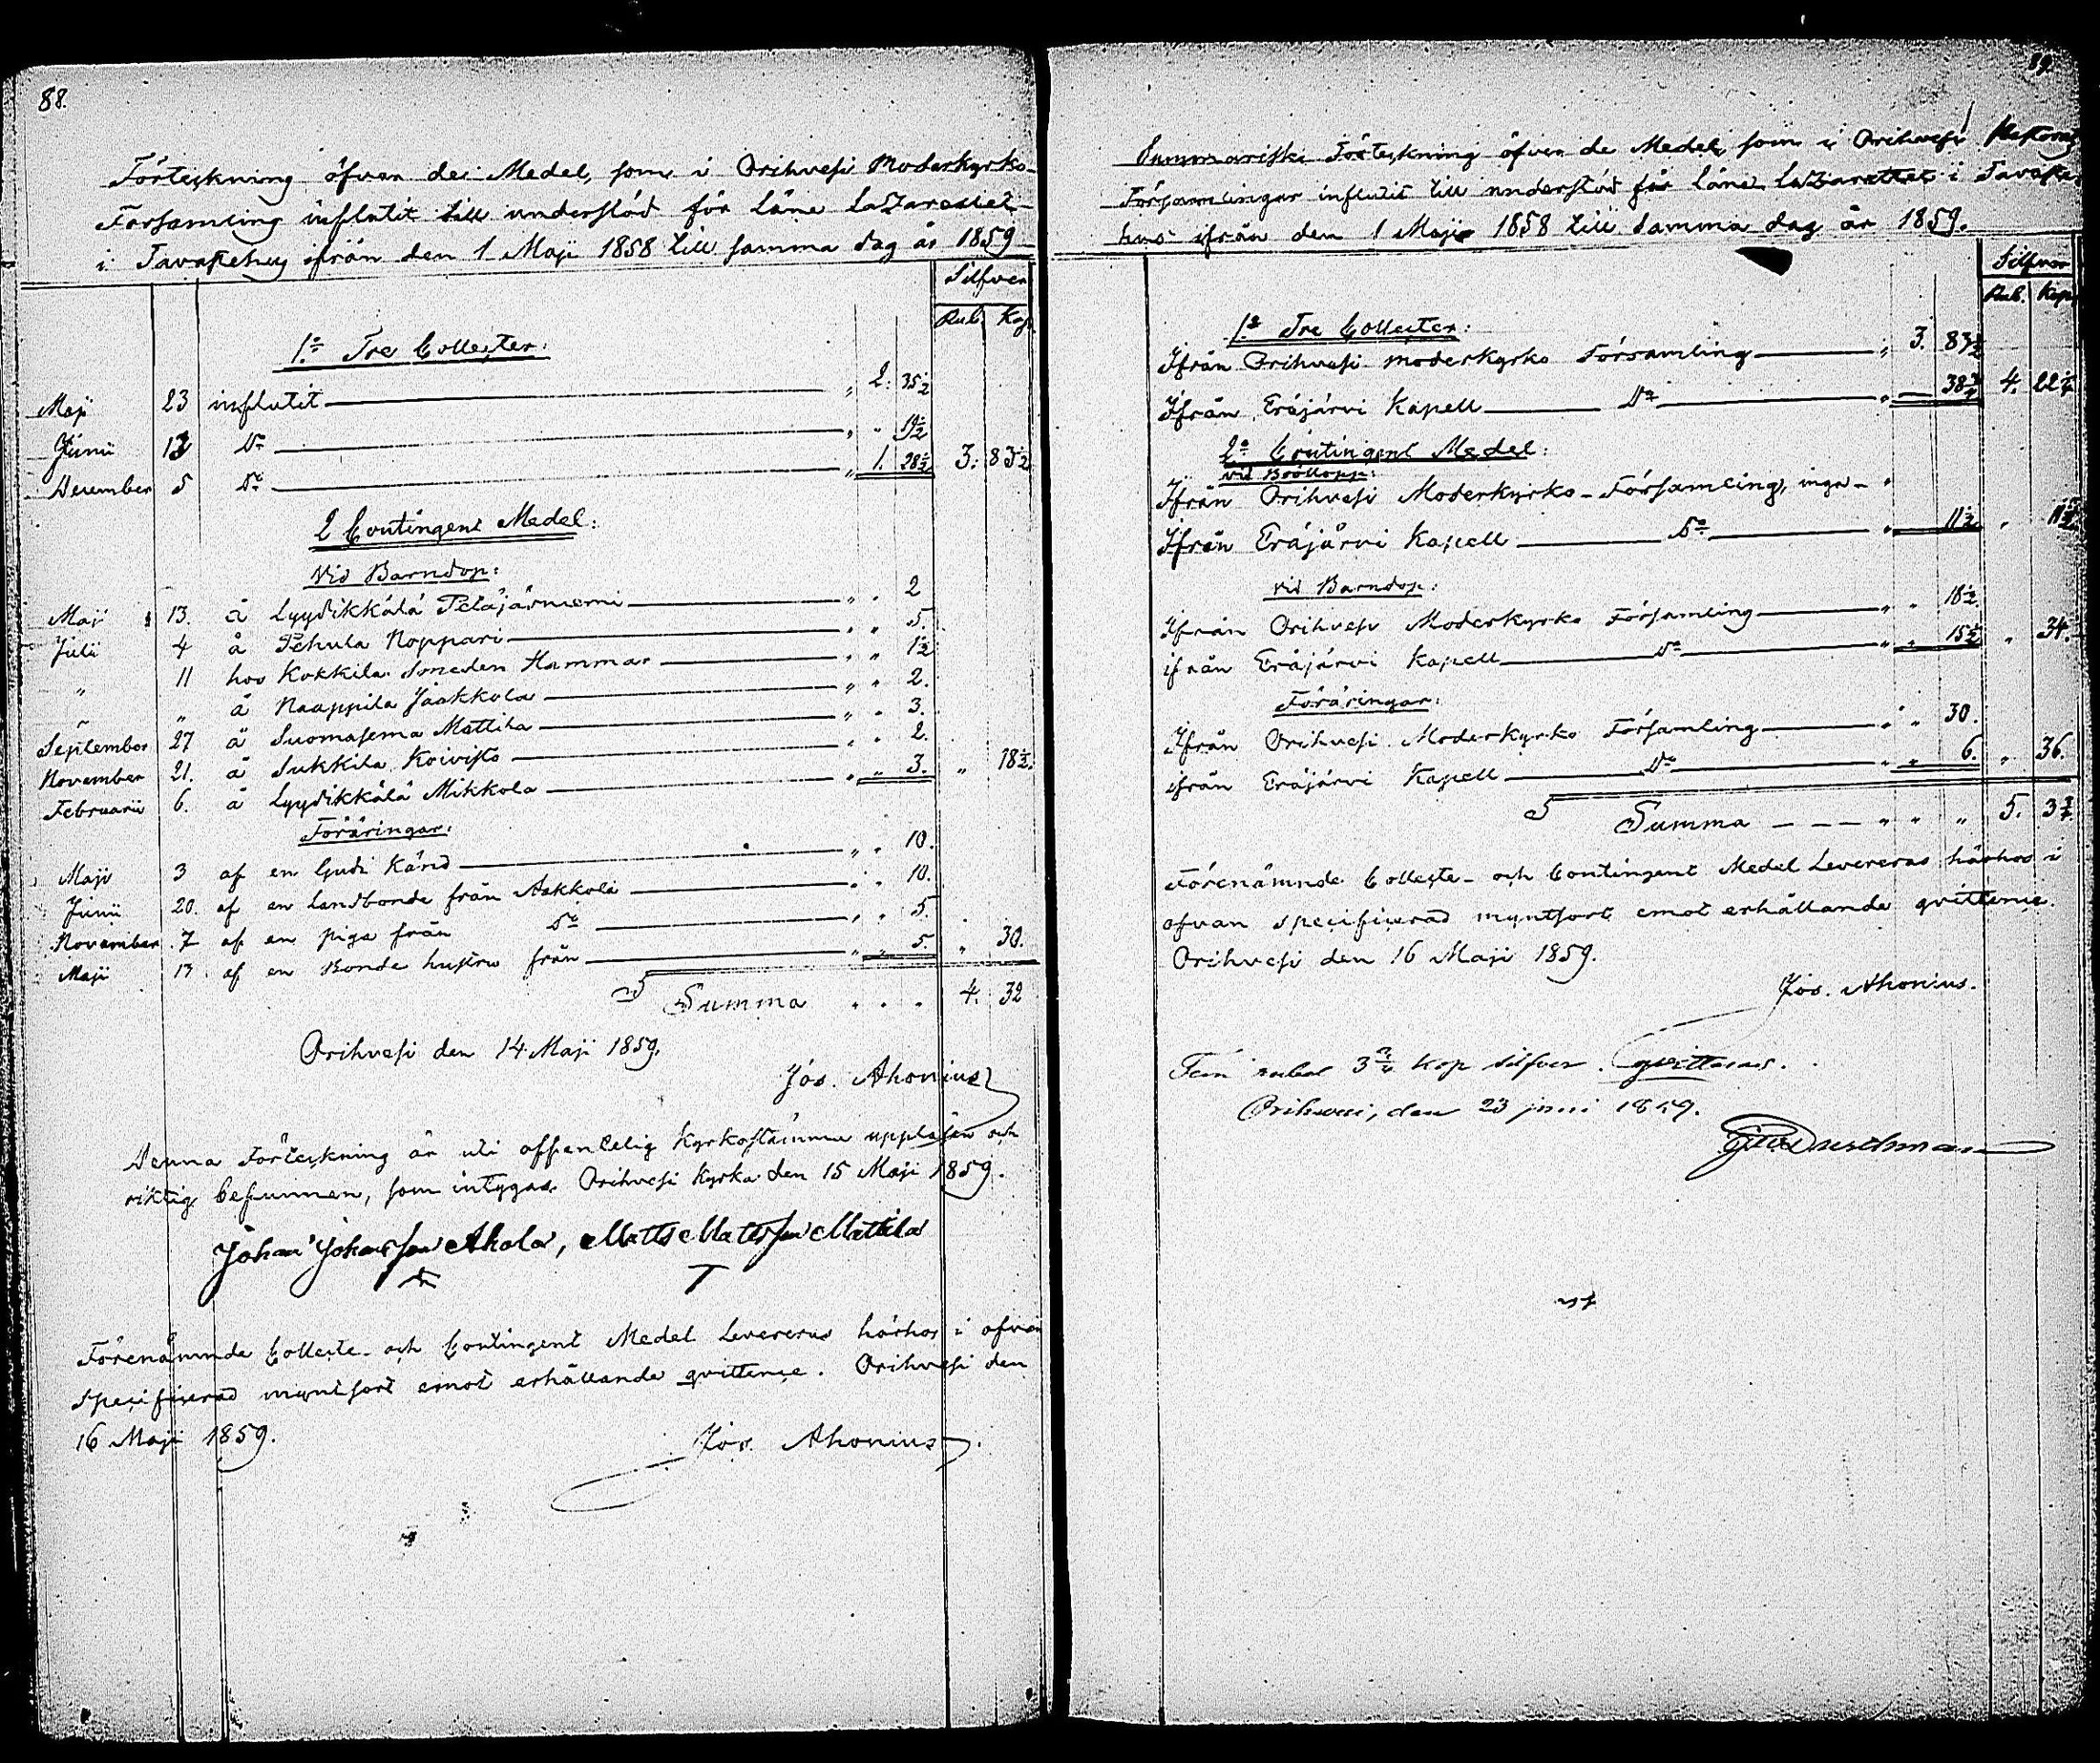 88.
Förteckning öfver de Medel, som i Orihvesi Moderkyrko-
Församling influtit till understöd för Läne Lazarettet
i Tavastehus ifrån den 1 Maji 1858 till samma dag år 1859
Silfver
Rub. Kop.
1:o Tre Collecter:
Maji 23 influtit „ 2: 35½
Junii 13 D:o „ „ 19½
December 5 D:o „ 1. 28½ 3: 83½
2 Contingent Medel:
Vid Barndop:
Maji 13. å Lyydikkälä Petäjäniemi „ „ 2
Juli 4 å Pehula Noppari „ „ 5.
„ 11 hos Kokkila Smeden Hammar „ „ 1½
„ „ å Naappila Jaakkola „ „ 2.
September 27 å Suomasema Mattila „ „ 3.
November 21. å Sukkila Koivisto „ „ 2.
Februarii 6. å Lyydikkälä Mikkola „ „ 3. „ 18½.
Föräringar:
Maji 3 af en Gudi Känd „ „ 10.
Junii 20. af en Landbonde från Aakkola „ „ 10.
November 7 af en piga från D:o „ „ 5.
Maji 13 af en Bonde hustru från „ „ 5. „ 30.
Summa 4. 32
Orihvesi den 14 Maji 1859.
Jos. Ahonius
Denna Förteckning är uti offentelig Kyrkostämma uppläsen och
riktig befunnen, som intygas. Orihvesi Kyrka den 15 Maji 1859.
Johan Johansson Ahola, Matts Mattsson Mattila
Förenämnde Collecte- och Contingent Medel Levereras härhos i ofvan
specificerad myntsort emot erhållande qvittence. Orihvesi den
16 Maji 1859.
Jos. Ahonius.
89
Summariska Förteckning öfver de Medel, som i Orihvesi Pastorats
Församlingar influtit till understöd för Läne Lazarettet i Tavaste-
hus ifrån den 1 Maji 1858 till samma dag år 1859.
Silfver
Rub. Kop.
1:o Tre Collecter:
Ifrån Orihvesi moderkyrko Församling „ 3. 83½
Ifrån Eräjärvi Kapell D:o „ — 38¾ 4. 22¼
2:o Contingent Medel:
vid Bröllopp:
Ifrån Orihvesi Moderkyrko-Församling, inga — „
Ifrån Eräjärvi Kapell D:o „ 11½ „ 11½
vid Barndop:
Ifrån Orihvesi Moderkyrko Församling „ „ 18½.
ifrån Eräjärvi Kapell D:o „ „ 15½ „ 34.
Föräringar:
Ifrån Orihvesi Moderkyrko Församling „ „ 30.
ifrån Eräjärvi Kapell D:o „ „ 6. „ 36.
Summa — — — „ „ „ 5. 3¾
Förenämnde Collecte- och Contingent Medel Levereras härhos i
ofvan specificerad myntsort emot erhållande qvittence.
Orihvesi den 16 Maji 1859.
Jos. Ahonius.
Fem rubel 3¾ kop silfver qvitteras.
Orihvesi, den 23 juni 1859.